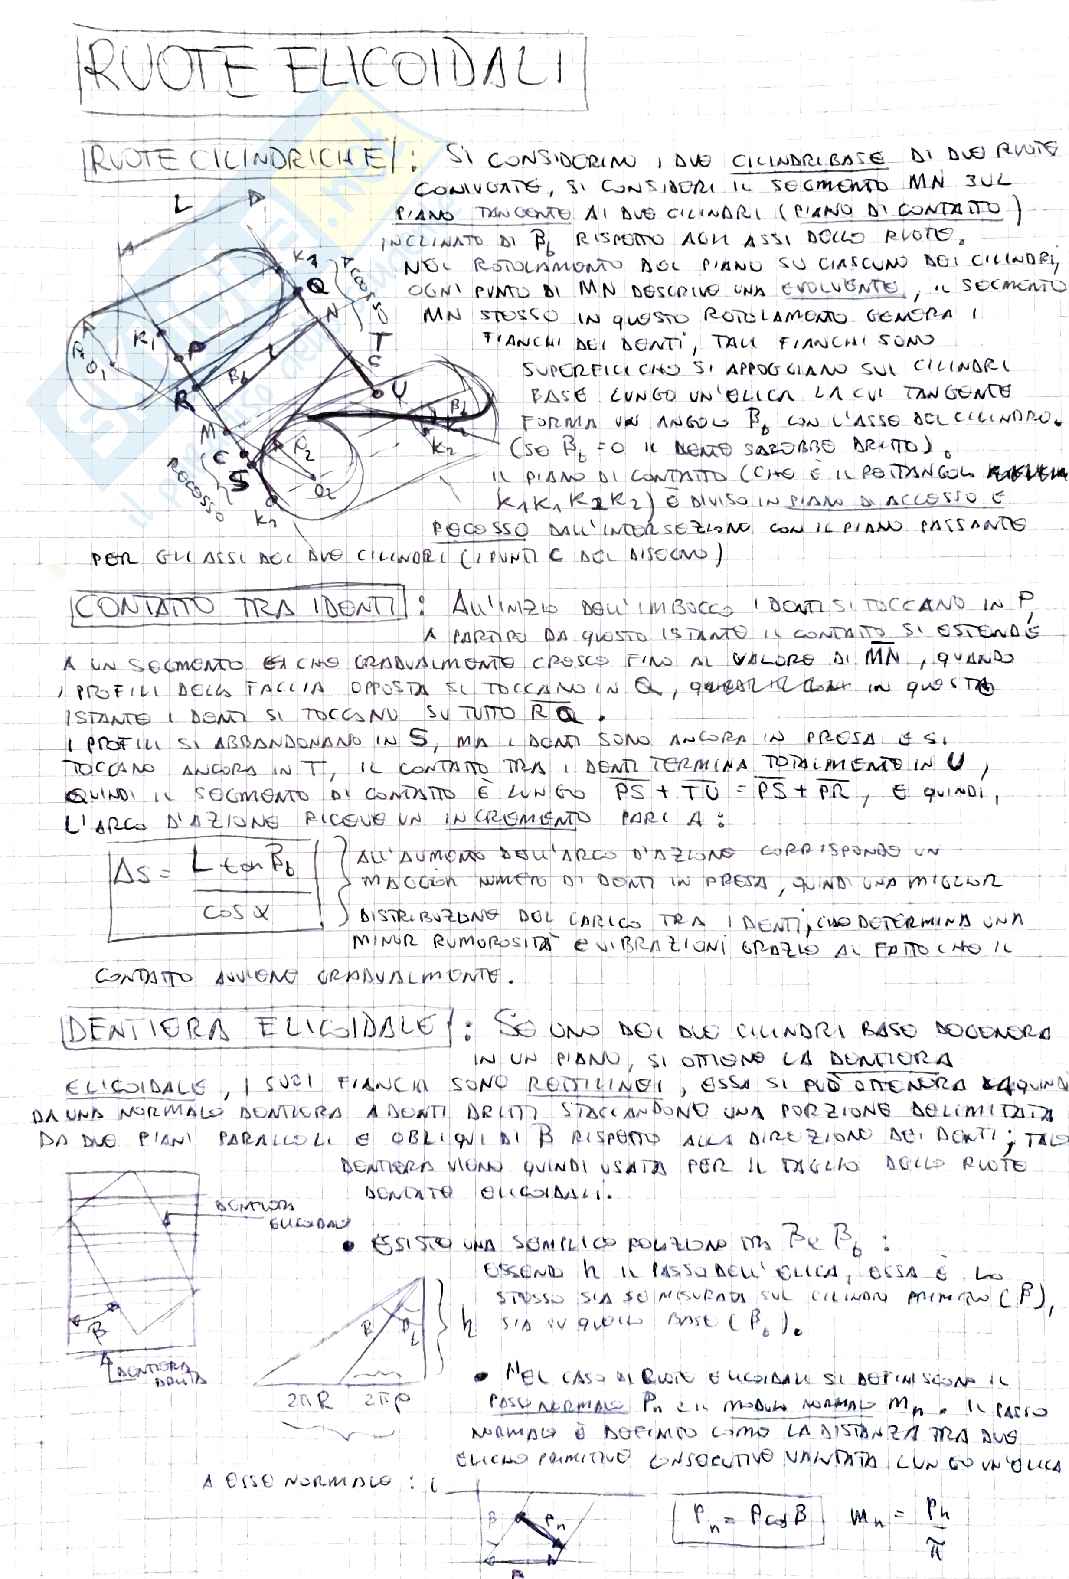 RUOTE ELICOIDALI
RUOTE CILINDRICHE: SI CONSIDERINO I DUE CILINDRI BASE DI DUE RUOTE
CONIUGATE, SI CONSIDERI IL SEGMENTO MN SUL
PIANO TANGENTE AI DUE CILINDRI (PIANO DI CONTATTO)
INCLINATO DI βb RISPETTO AGLI ASSI DELLE RUOTE.
NEL ROTOLAMENTO DEL PIANO SU CIASCUNO DEI CILINDRI,
OGNI PUNTO DI MN DESCRIVE UNA EVOLVENTE, IL SEGMENTO
MN STESSO IN QUESTO ROTOLAMENTO GENERA I
FIANCHI DEI DENTI, TALI FIANCHI SONO
SUPERFICI CHE SI APPOGGIANO SUI CILINDRI
BASE LUNGO UN'ELICA LA CUI TANGENTE
FORMA UN ANGOLO βb CON L'ASSE DEL CILINDRO.
(SE βb =0 IL DENTE SAREBBE DRITTO).
IL PIANO DI CONTATTO (CHE È IL RETTANGOL
K1K1K2K2) È DIVISO IN PIANO DI ACCESSO E
RECESSO DALL'INTERSEZIONE CON IL PIANO PASSANTE
PER GLI ASSI DEI DUE CILINDRI (I PUNTI C DEL DISEGNO)
L
K1
Q
N
ACCESSO
T
C
U
K1
P
O1
R
βb
M
C
S
RECESSO
K2
ρ2
O2
βb
K2
CONTATTO TRA I DENTI: ALL'INIZIO DELL'IMBOCCO I DENTI SI TOCCANO IN P,
A PARTIRE DA QUESTO ISTANTE IL CONTATTO SI ESTENDE
A UN SEGMENTO CHE GRADUALMENTE CRESCE FINO AL VALORE DI MN, QUANDO
I PROFILI DELLA FACCIA OPPOSTA SI TOCCANO IN Q, IN QUESTO
ISTANTE I DENTI SI TOCCANO SU TUTTO RQ.
I PROFILI SI ABBANDONANO IN S, MA I DENTI SONO ANCORA IN PRESA E SI
TOCCANO ANCORA IN T, IL CONTATTO TRA I DENTI TERMINA TOTALMENTE IN U,
QUINDI IL SEGMENTO DI CONTATTO È LUNGO PS + TU = PS + PR, E QUINDI,
L'ARCO D'AZIONE RICEVE UN INCREMENTO PARI A:
Δs = L tan βb / cos α
ALL'AUMENTO DELL'ARCO D'AZIONE CORRISPONDE UN
MAGGIOR NUMERO DI DENTI IN PRESA, QUINDI UNA MIGLIOR
DISTRIBUZIONE DEL CARICO TRA I DENTI, CHE DETERMINA UNA
MINOR RUMOROSITÀ E VIBRAZIONI GRAZIE AL FATTO CHE IL
CONTATTO AVVIENE GRADUALMENTE.
DENTIERA ELICOIDALE: SE UNO DEI DUE CILINDRI BASE DEGENERA
IN UN PIANO, SI OTTIENE LA DENTIERA
ELICOIDALE, I SUOI FIANCHI SONO RETTILINEI, ESSA SI PUÒ OTTENERE QUINDI
DA UNA NORMALE DENTIERA A DENTI DRITTI STACCANDONE UNA PORZIONE DELIMITATA
DA DUE PIANI PARALLELI E OBLIQUI DI β RISPETTO ALLA DIREZIONE DEI DENTI; TALE
DENTIERA VIENE QUINDI USATA PER IL TAGLIO DELLE RUOTE
DENTATE ELICOIDALI.
DENTIERA
ELICOIDALE
β
DENTIERA
DRITTA
• ESISTE UNA SEMPLICE RELAZIONE TRA β E βb:
ESSENDO h IL PASSO DELL'ELICA, ESSA È LO
STESSO SIA SE MISURATA SUL CILINDRO PRIMITIVO (β),
SIA SU QUELLO BASE (βb).
β
βb
h
2πR 2πρ
• NEL CASO DI RUOTE ELICOIDALI SI DEFINISCONO IL
PASSO NORMALE Pn E IL MODULO NORMALE mn. IL PASSO
NORMALE È DEFINITO COME LA DISTANZA TRA DUE
ELICHE PRIMITIVE CONSECUTIVE VALUTATA LUNGO UN'ELICA
A ESSE NORMALE:
β Pn
P
Pn = P cos β mn = Pn / π